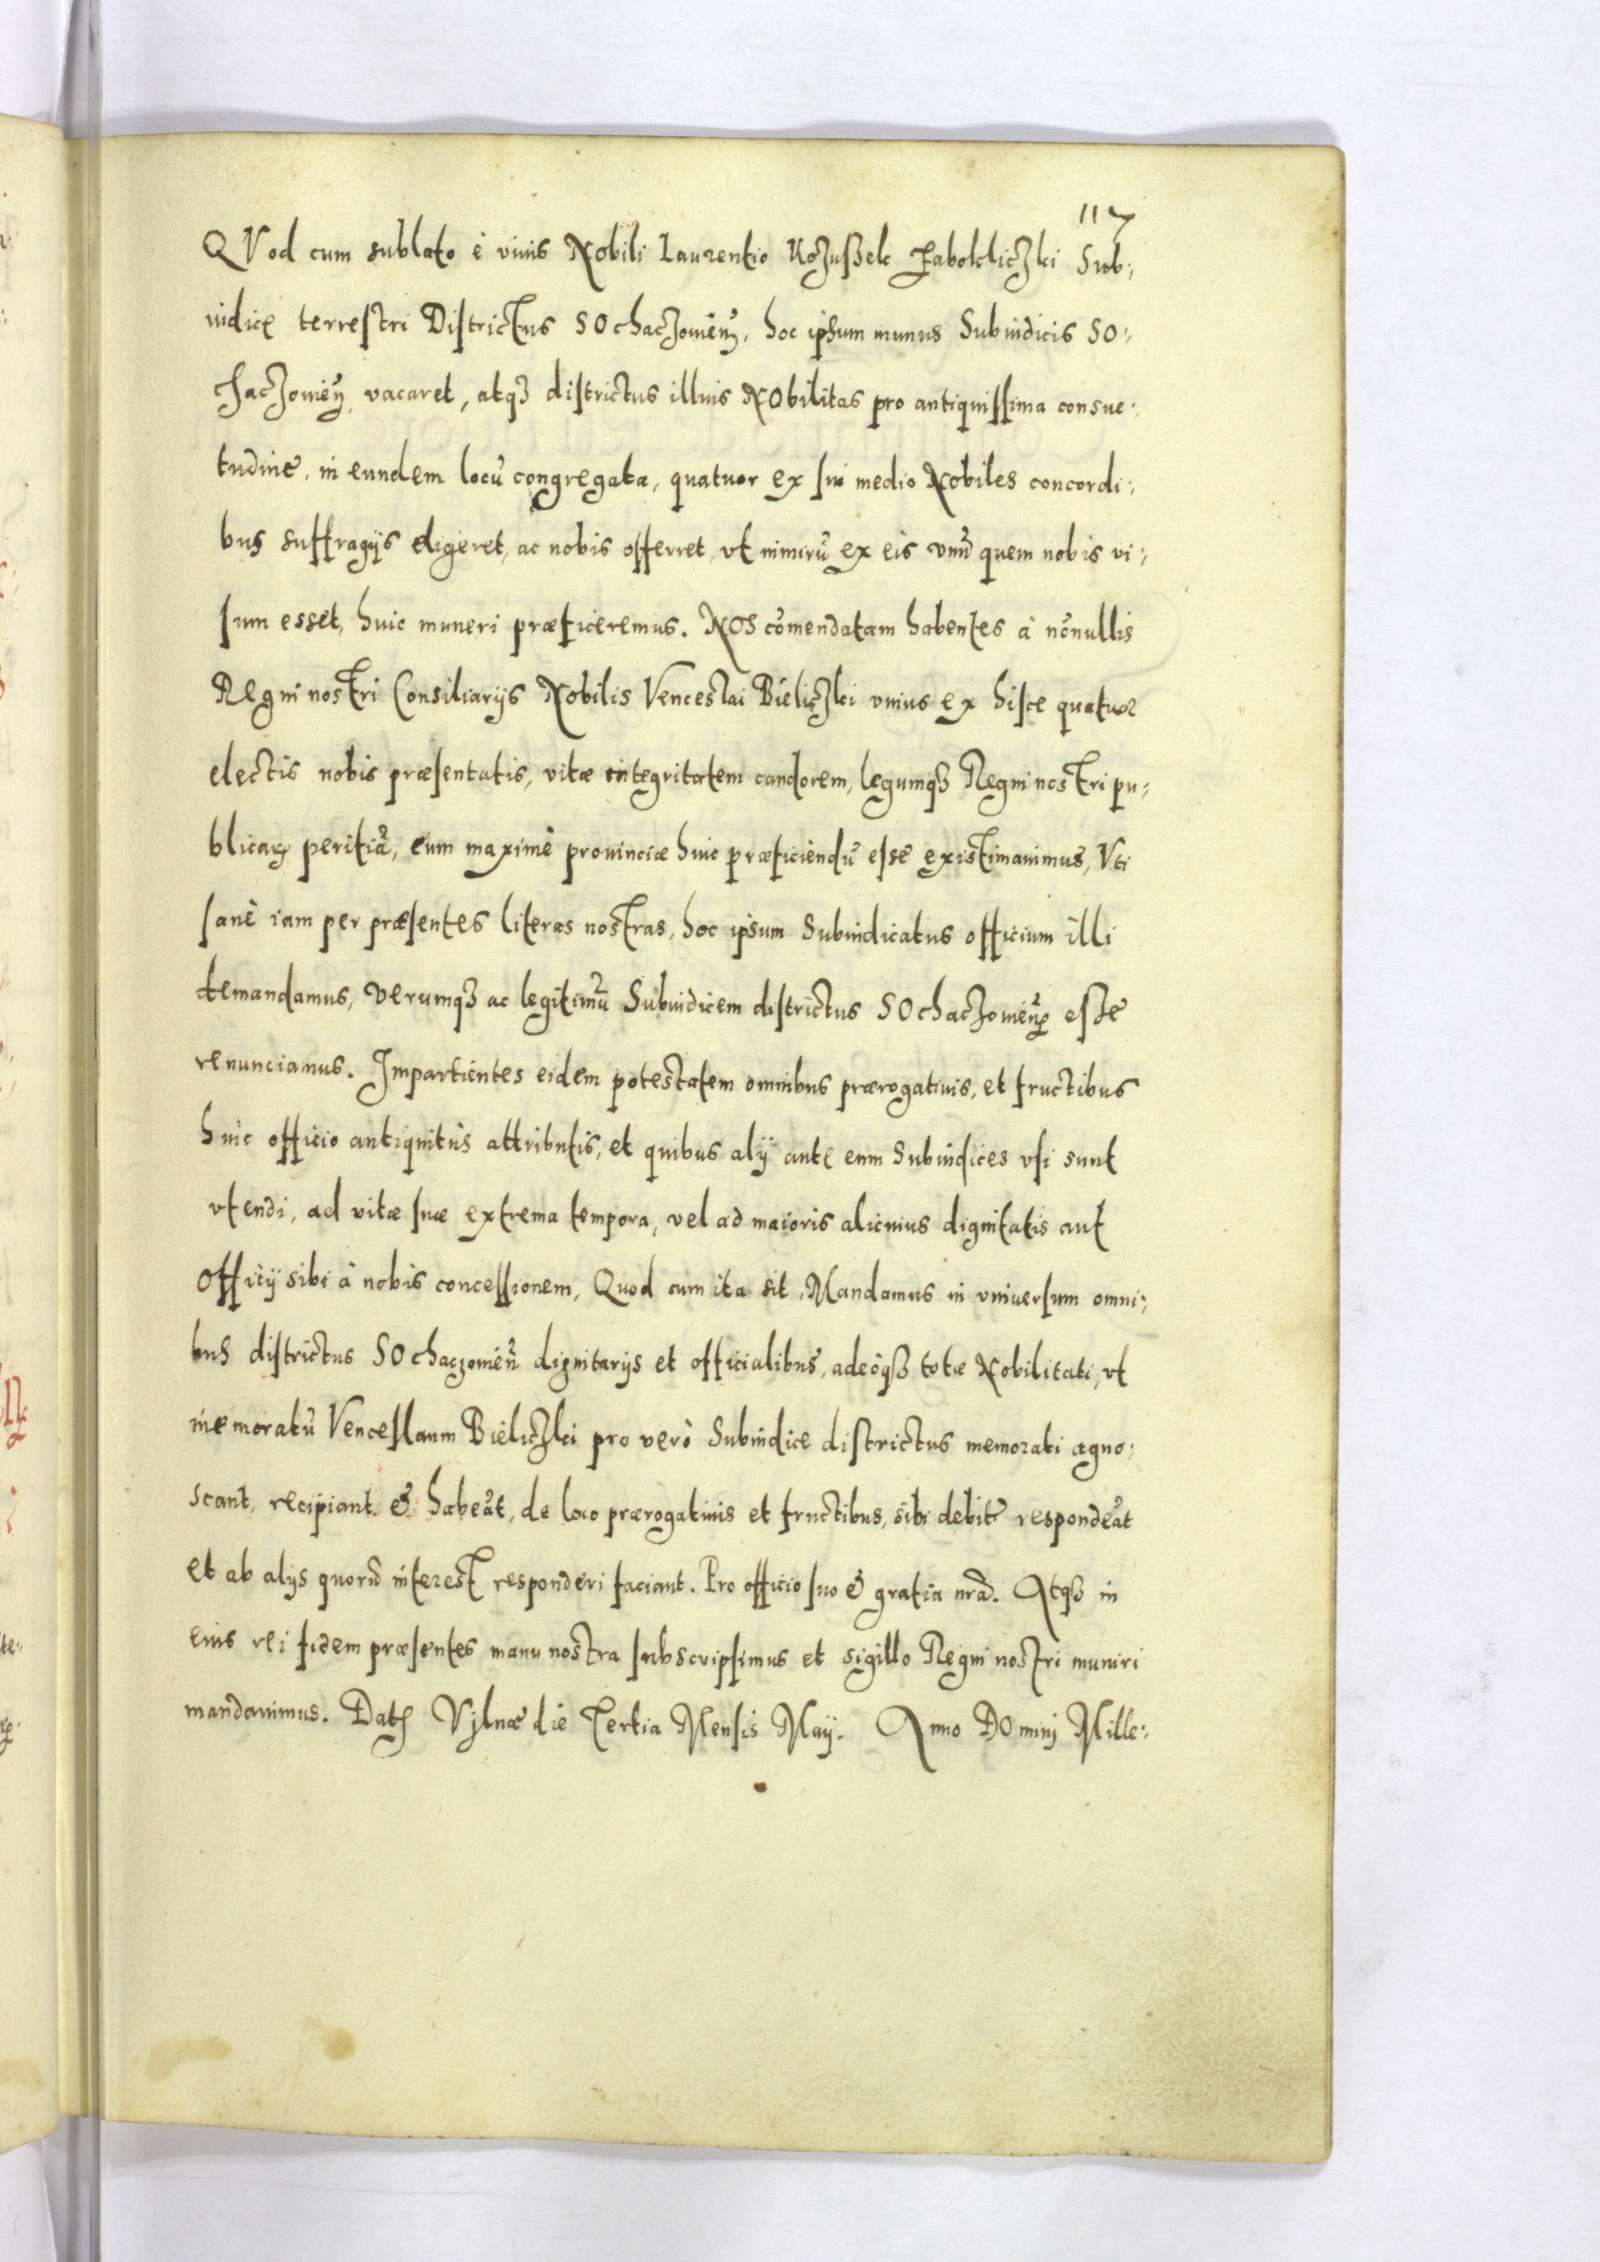 117
QVod cum sublato è viuis Nobili Laurentio Kozussek Zabokliczki Sub:
iudice terrestri Districtus SOchaczouień, hoc ipsum munus Subiudicis SO:
chaczouień vacaret, atqȝ districtus illius NObilitas pro antiquissima consue:
tudine, in eundem locũ congregata, quatuor ex sui medio Nobiles concordi:
bus suffragijs eligeret, ac nobis offerret, vt nimirũ ex eis vnũ quem nobis vi:
sum esset, huic muneri præficeremus. NOS cõmendatam habentes à nõnullis
Regni nostri Consiliarijs Nobilis Venceslai Bieliczki vnius ex hisce quatuor
electis nobis præsentatis, vitæ integritatem candorem, legumqȝ Regni nostri pu:
blicaꝝ peritiã, eum maximè prouinciæ huic præficiendũ esse existimauimus, Vti
sanè iam per præsentes literas nostras, hoc ipsum Subiudicatus officium illi
demandamus, Verumqȝ ac legitimũ Subiudicem districtus SOchaczouień esse
renunciamus. Impartientes eidem potestatem omnibus prærogatiuis, et fructibus
huic officio antiquitùs attributis, et quibus alij ante eum Subiudices vsi sunt
vtendi, ad vitæ suæ extrema tempora, vel ad maioris alicuius dignitatis aut
Officij sibi à nobis concessionem, Quod cum ita sit, Mandamus in vniuersum omni:
bus districtus SOchaczouień dignitarijs et officialibus, adeoqȝ totæ Nobilitati, vt
memoratũ Venceslaum Bieliczki pro vero Subiudice districtus memorati agno:
scant, recipiant & habeãt, de loco prærogatiuis et fructibus, sibi debitè respondeãt
et ab alijs quorũ interest responderi faciant. Pro officio suo & gratia nrã. Atqȝ in
eius rei fidem præsentes manu nostra subscripsimus et sigillo Regni nostri muniri
mandauimus. Datȝ Vjlnæ die Tertia Mensis Maij. Anno DOminj Mille: